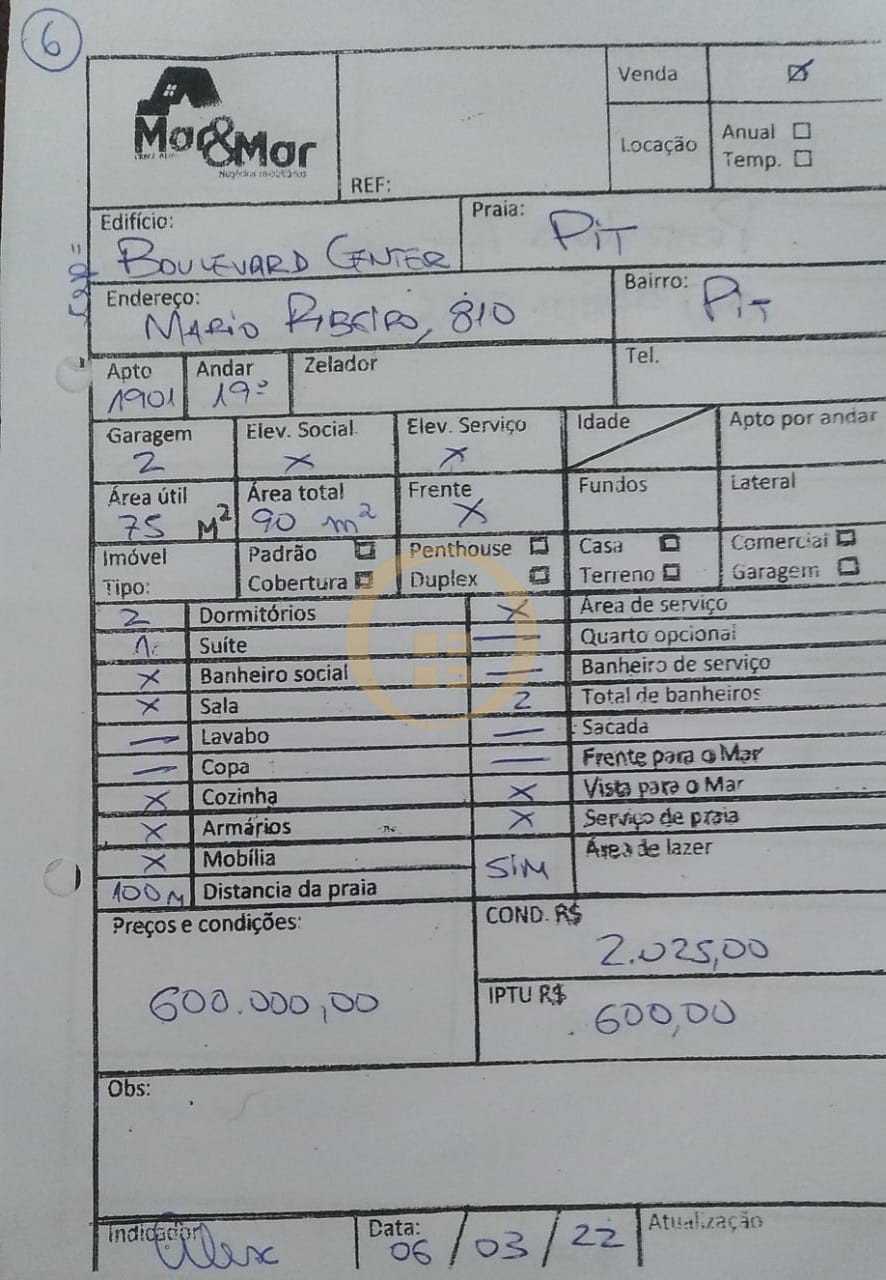 6
Mar&Mar
Negócios imobiliários
REF:
Venda ☑
Locação
Anual ☐
Temp. ☐
Edifício:
BOULEVARD CENTER
Praia:
PIT
Endereço:
MARIO RIBEIRO, 810
Bairro:
PIT
Apto
1901
Andar
19º
Zelador
Tel.
Garagem
2
Elev. Social
X
Elev. Serviço
X
Idade
Apto por andar
Área útil
75 M²
Área total
90 m²
Frente
X
Fundos
Lateral
Imóvel
Tipo:
Padrão ☐
Cobertura ☐
Penthouse ☐
Duplex ☐
Casa ☐
Terreno ☐
Comercial ☐
Garagem ☐
2 Dormitórios
X Área de serviço
1 Suíte
— Quarto opcional
X Banheiro social
— Banheiro de serviço
X Sala
2 Total de banheiros
— Lavabo
— Sacada
— Copa
— Frente para o Mar
X Cozinha
X Vista para o Mar
X Armários
X Serviço de praia
X Mobília
SIM Área de lazer
100M Distancia da praia
Preços e condições:
600.000,00
COND. R$
2.025,00
IPTU R$
600,00
Obs:
Indicador
Alex
Data:
06/03/22
Atualização